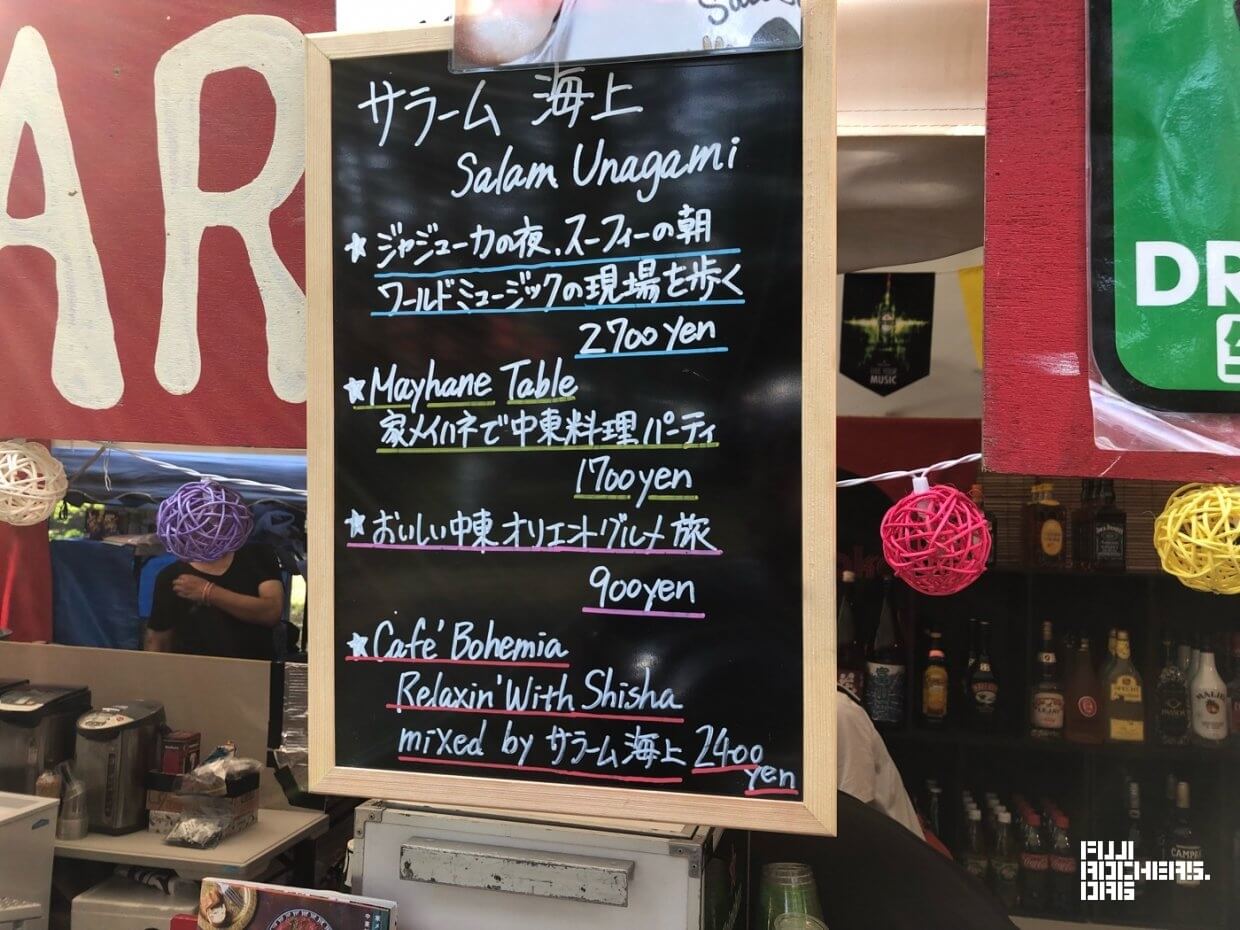 AR
サラーム 海上
Salam Unagami
★ジャジューカの夜、スーフィーの朝
ワールドミュージックの現場を歩く
2700 yen
★Mayhane Table
家メイハネで中東料理パーティ
1700yen
★おいしい中東オリエントグルメ旅
900yen
★Café Bohemia
Relaxin' With Shisha
mixed by サラーム海上 2400
yen
DR
MUSIC
FUJI
ROCKERS.
ORG